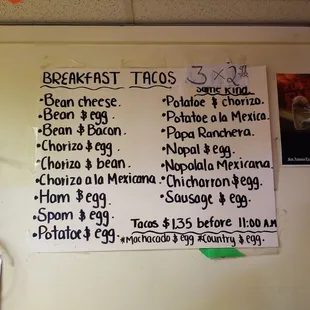 BREAKFAST TACOS 3 x 2
Same Kind.
• Bean cheese.
• Bean $ egg.
• Bean $ Bacon.
• Chorizo $ egg.
• Chorizo $ bean.
• Chorizo a la Mexicana.
• Ham $ egg.
• Spam $ egg.
• Potatoe $ egg.
• Potatoe $ chorizo.
• Potatoe a la Mexica.
• Papa Ranchera.
• Nopal $ egg.
• Nopalala Mexicana.
• Chicharron $ egg.
• Sausage $ egg.
Tacos $1.35 before 11:00 A.M
*Machacado $ egg *Country $ egg.